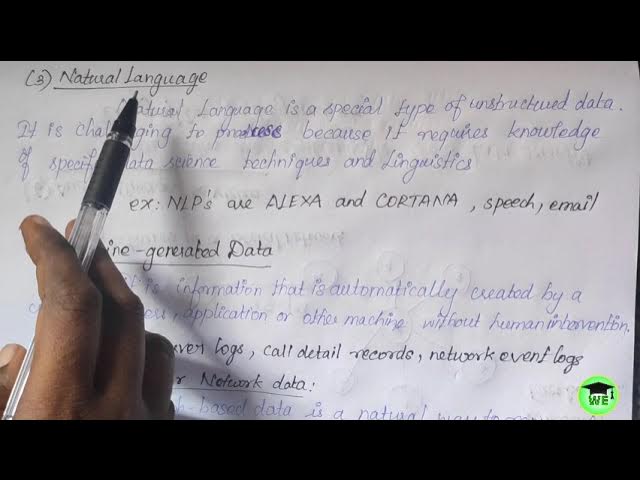 (3) Natural Language
Natural Language is a special type of unstructured data.
It is challenging to process because it requires knowledge
of specific data science techniques and Linguistics
ex: NLP's are ALEXA and CORTANA, speech, email
-generated Data
It is information that is automatically created by a
, application or other machine without human intervention.
logs, call detail records, network event logs
or Network data:
-based data is a natural way to
WE